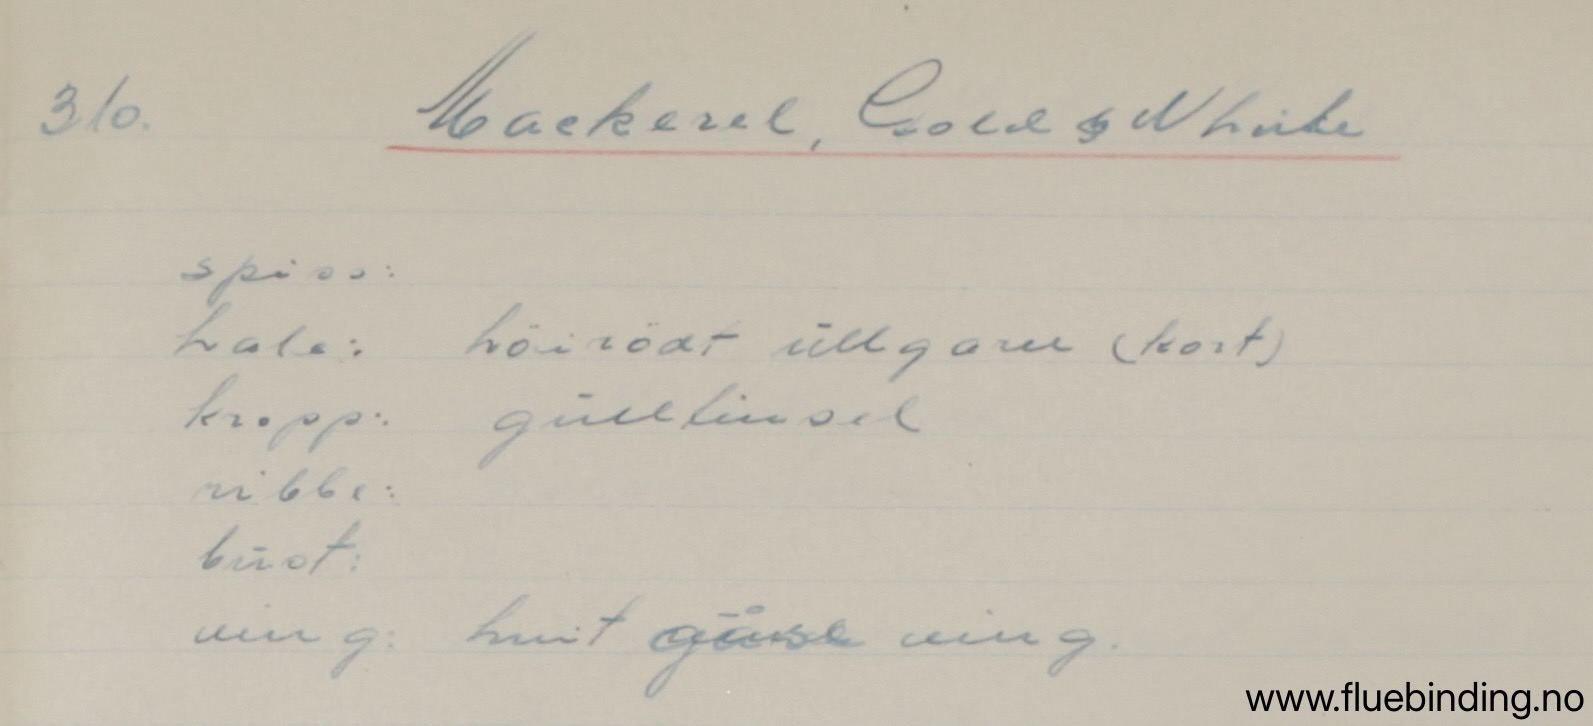 310.
Mackerel, Gold & White
spiss:
hale: höirödt ūllgarn (kort)
kropp: gūlltinsel
ribbe:
būst:
ving: hvit gåse ving.
www.fluebinding.no